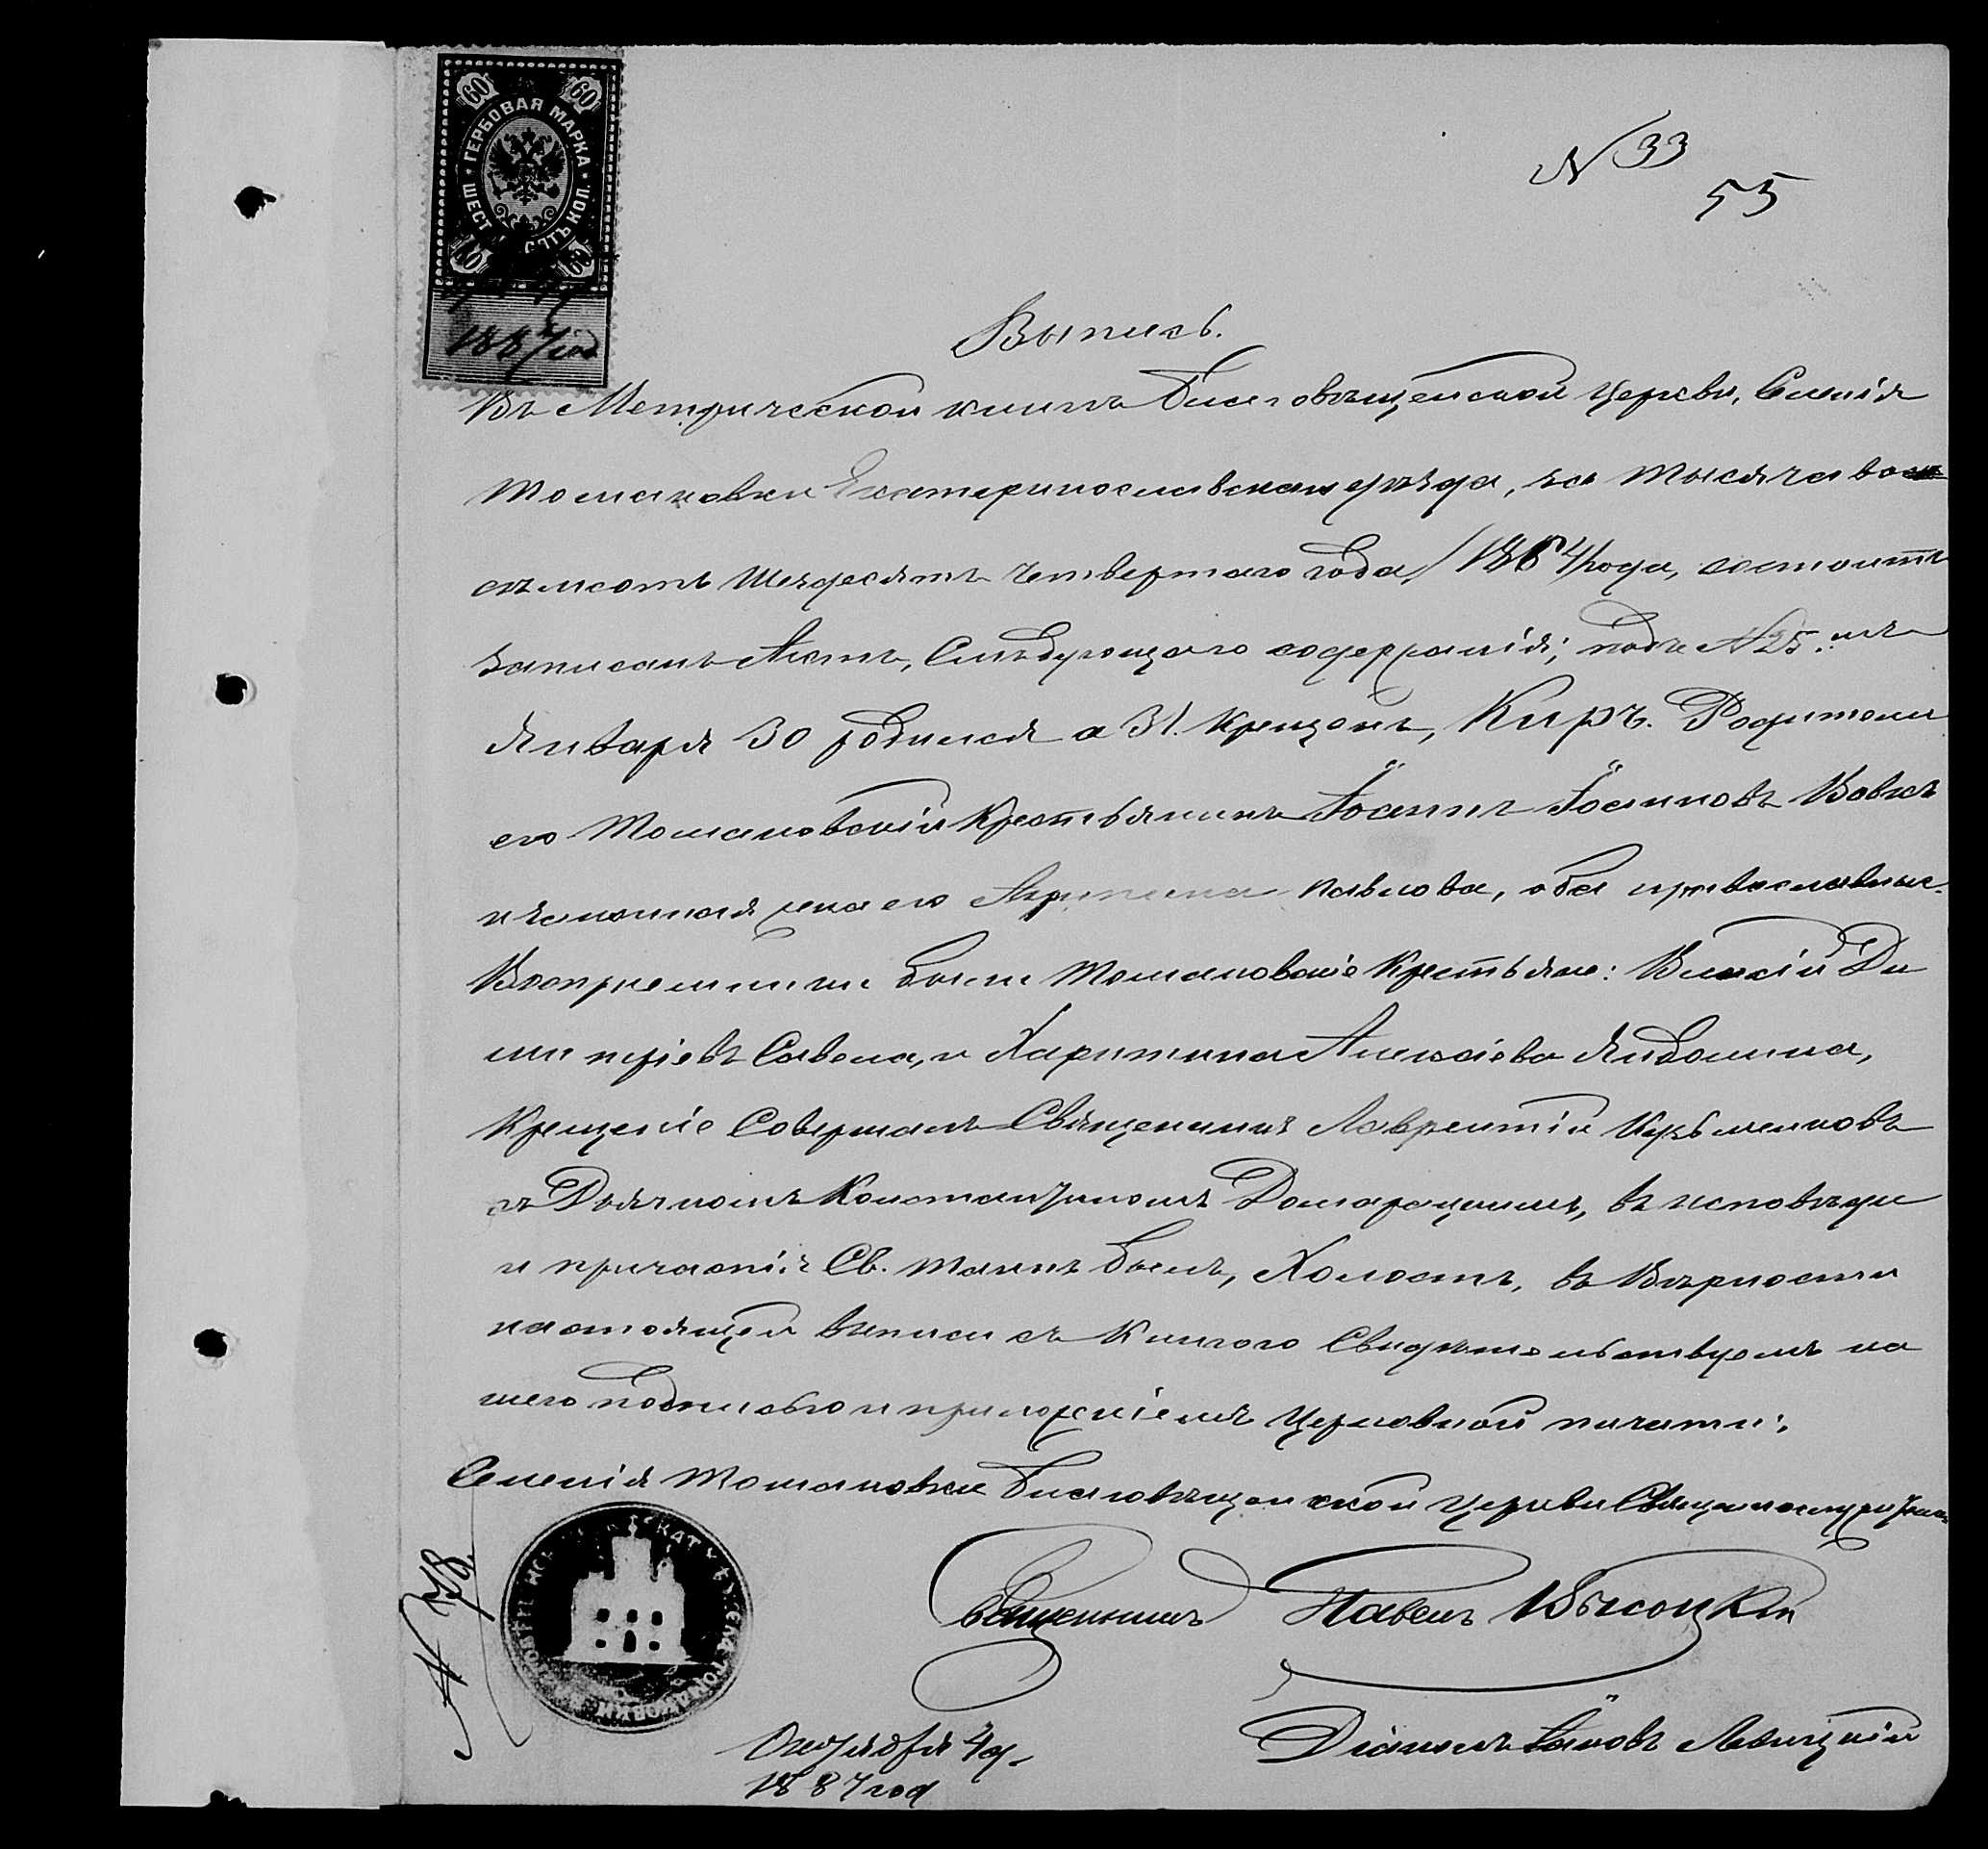 60 60
ГЕРБОВАЯ МАРКА
ШЕСТ СЯТЬ КОП.
60
1887 год
N 33
55
Выпись.
Въ Метрической книгѣ Благовѣщенской Церкви, Селенія
Томаковки Екатеринославскаго уѣзда, за тысяча во
семьсотъ Шездесятъ четвертаго года, /1864/ года, состоитъ
записанъ Актъ, Слѣдующаго содержанія; подъ N 25.мъ
Января 30 родился а 31. крещенъ, Киръ. Родители
его Томаковскій Крестьянинъ Іоаннъ Іоанновъ Вовкъ
и законная жена его Агрипина Павлова, оба православные.
Воспріемники были Томаковскіе Крестьяне: Василій Ди
митріевъ Савела, и Харитина Алексіева Ядолина,
Крещеніе Совершалъ Священникъ Лаврентій Кузьменковъ
съ Дьячкомъ Константиномъ Домарацкимъ, въ исповѣди
и причастіи Св. Таинъ былъ, Холостъ, въ Вѣрности
настоящей выписи съ Книгою Свидѣтельствуемъ на
шею подписью и приложеніемъ Церковной печати:
Селенія Томаковки Благовѣщенской Церкви Священнослужители
Священникъ Павелъ Высоцкій
Діаконъ Іаковъ Левицкій
N 78.
ЕКАТ У СЕЛА ТОМАКОВКИ
Октября 4 д.
1887 год